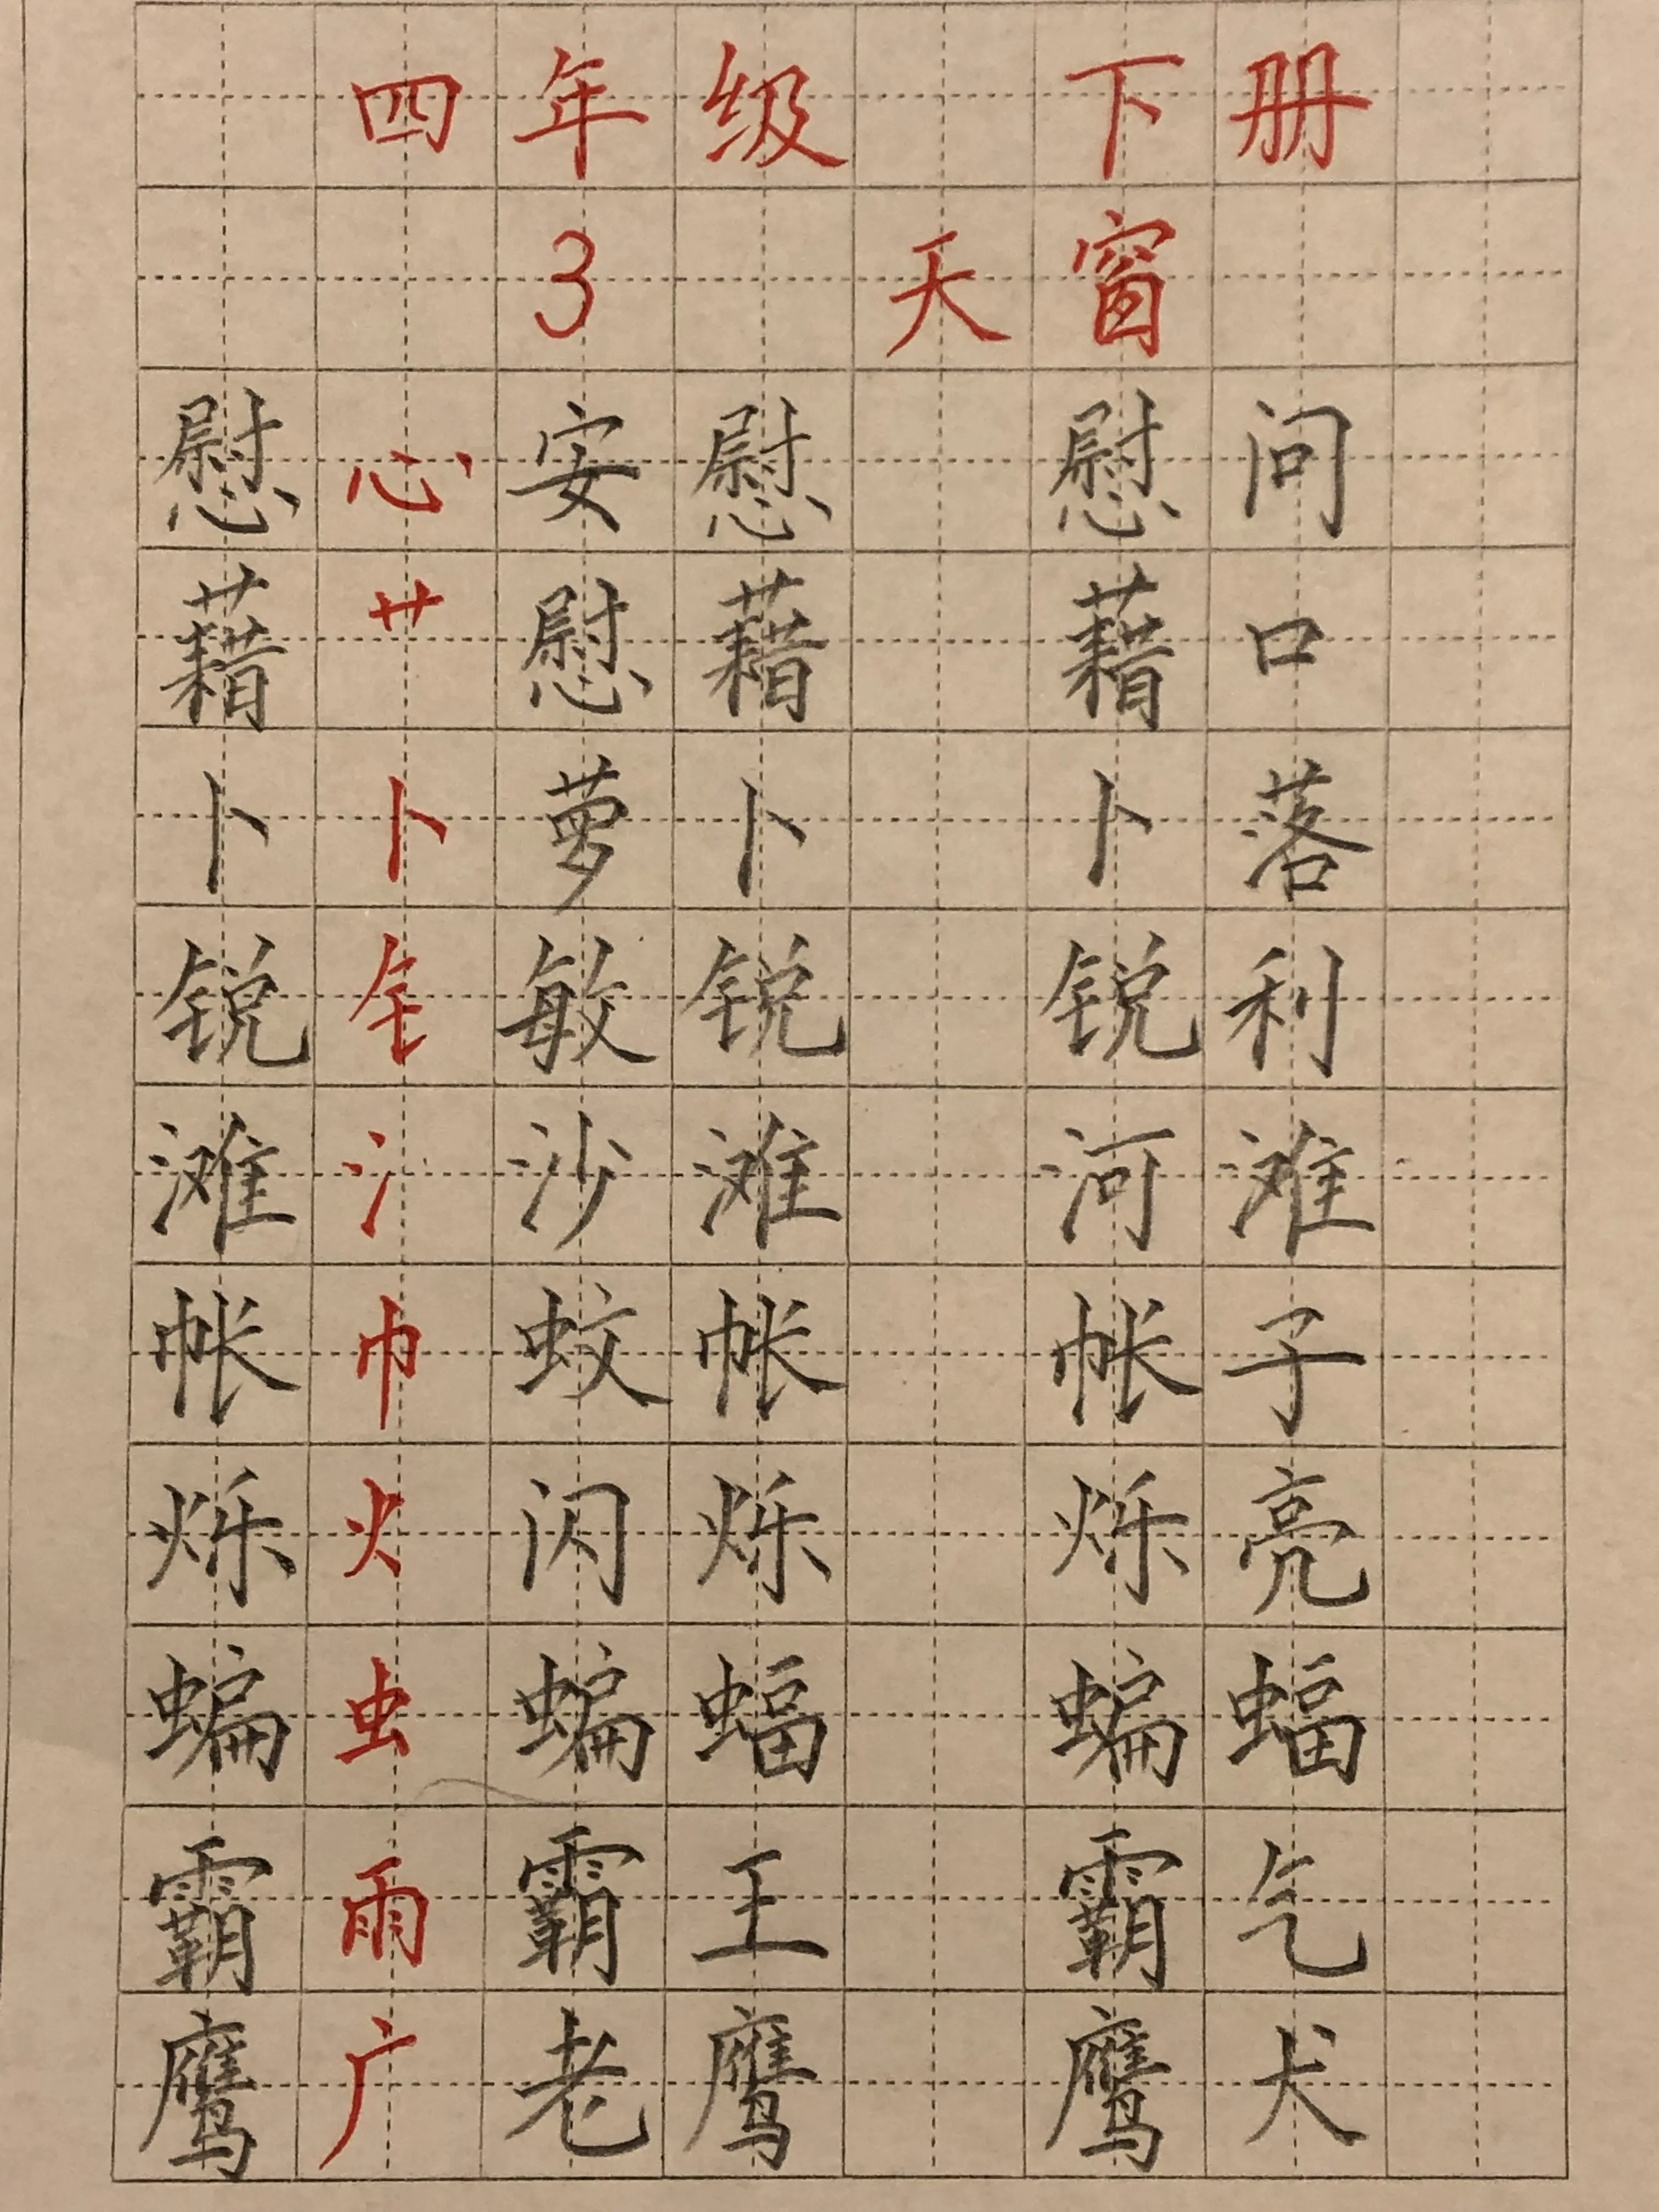 四年级 下册
3 天窗
慰 心 安慰 慰问
藉 艹 慰藉 藉口
卜 卜 萝卜 卜落
锐 钅 敏锐 锐利
滩 氵 沙滩 河滩
帐 巾 蚊帐 帐子
烁 火 闪烁 烁亮
蝙 虫 蝙蝠 蝙蝠
霸 雨 霸王 霸气
鹰 广 老鹰 鹰犬